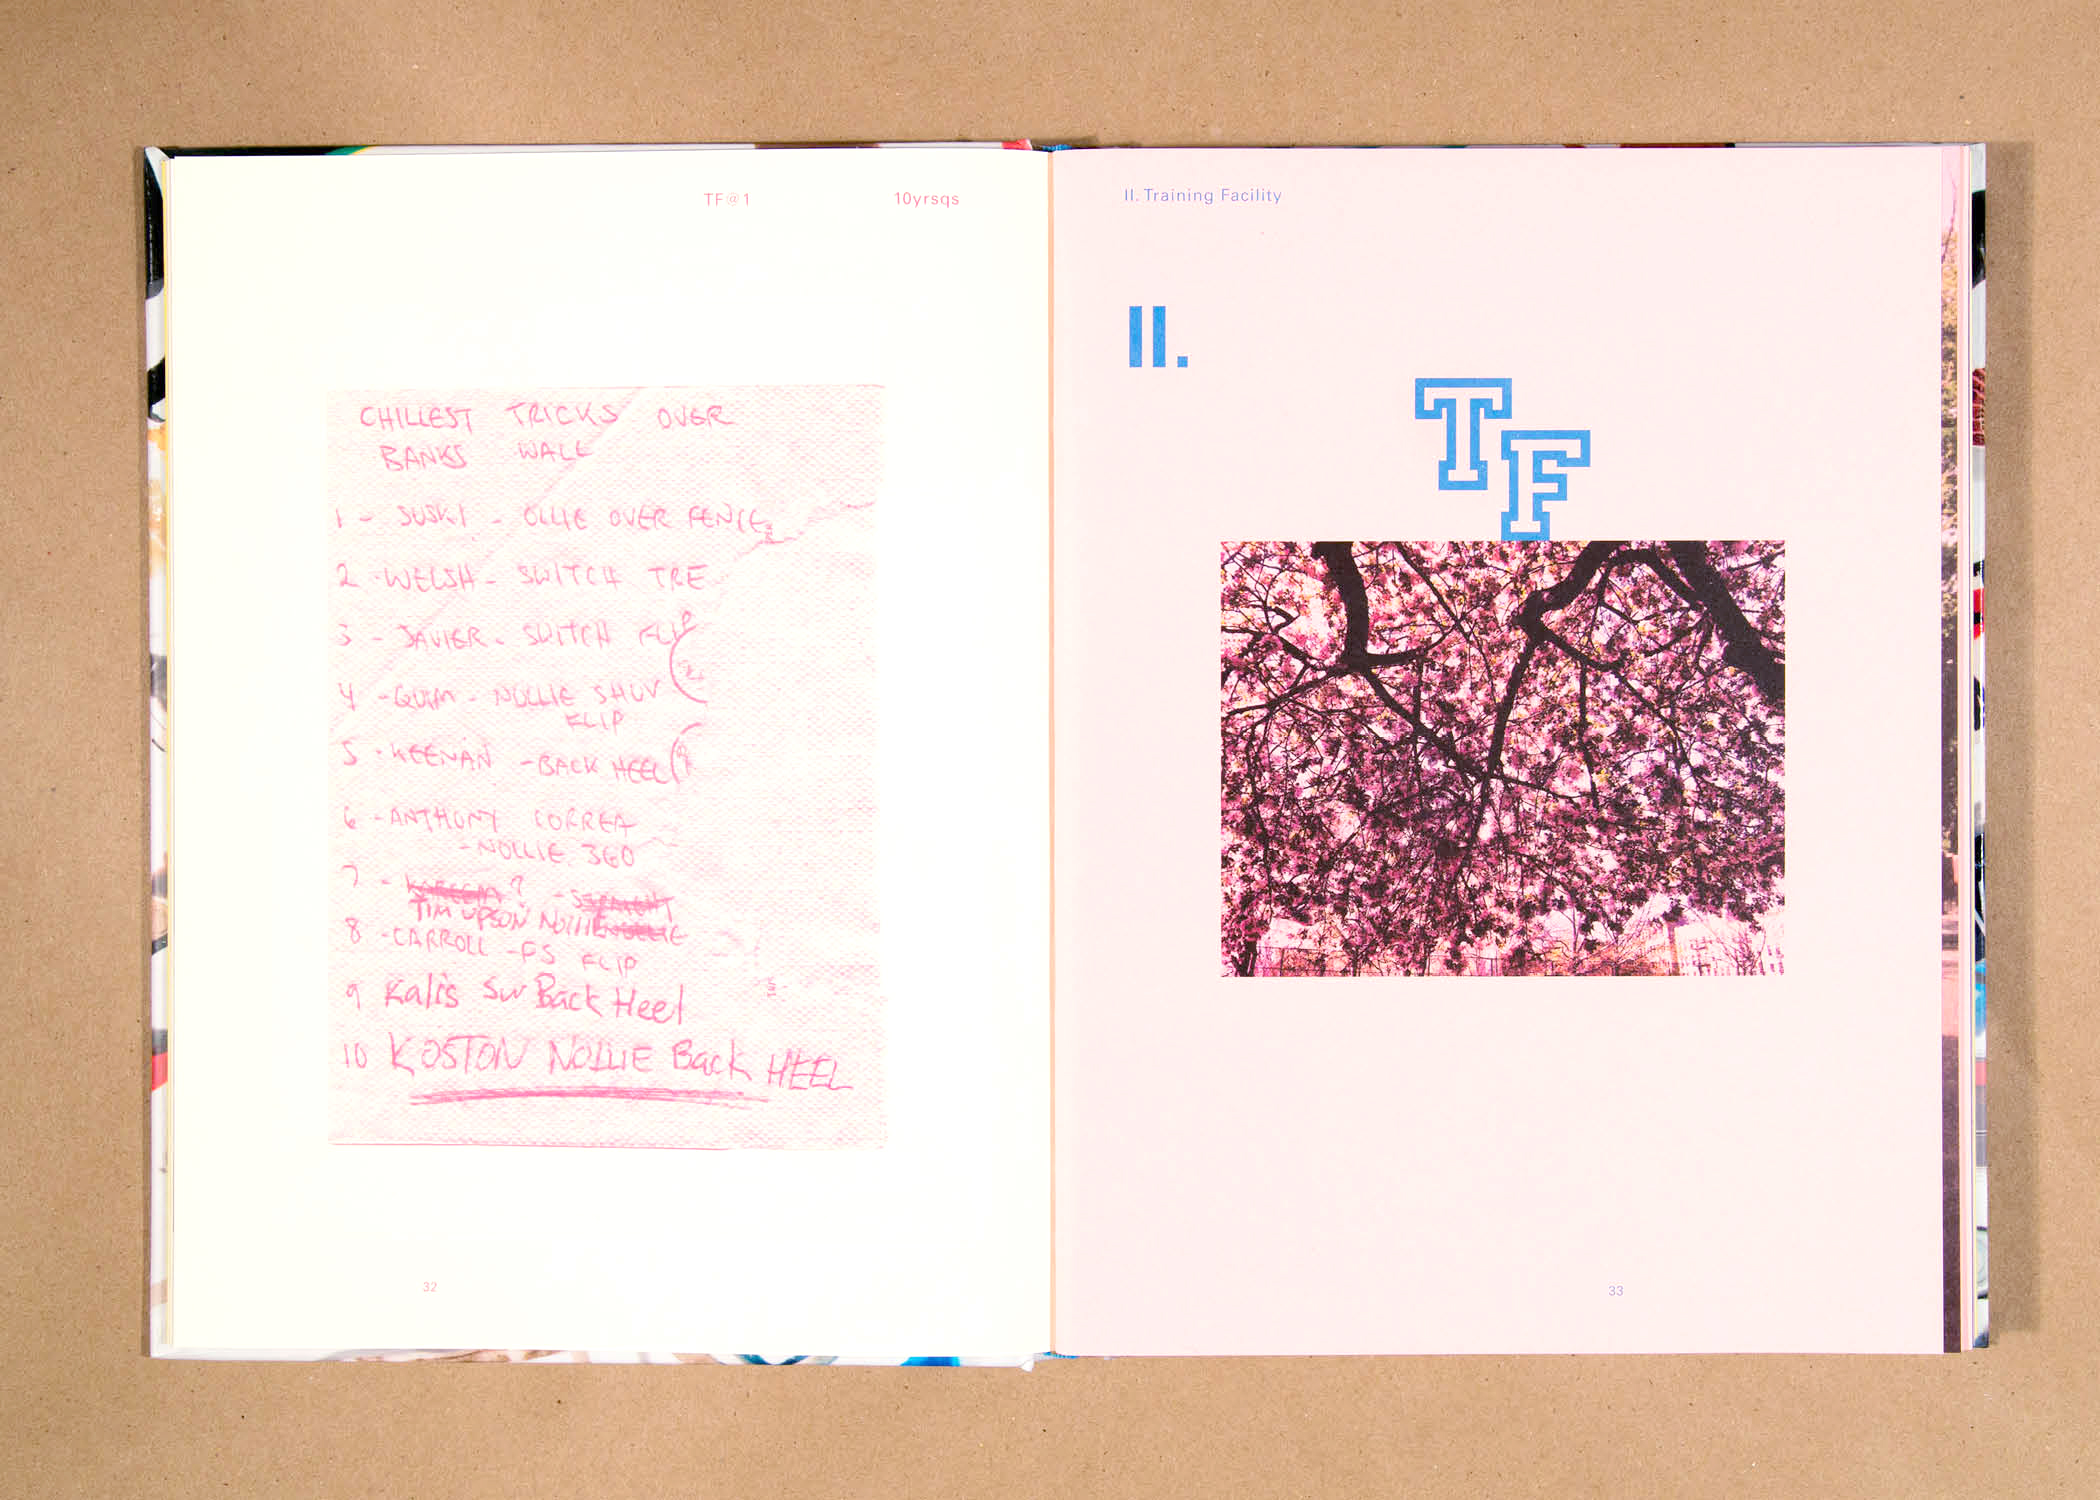 TF@1 10yrsqs
CHILLEST TRICKS OVER
BANKS WALL
1 - SUSKI - OLLIE OVER FENCE
2 - WELSH - SWITCH TRE
3 - JAVIER - SWITCH FLIP
4 - QUIM - NOLLIE SHUV
FLIP
5 - KEENAN - BACK HEEL
6 - ANTHONY CORREA
- NOLLIE 360
7 - ?
TIM UPSON NOLLIE
8 - CARROLL - FS FLIP
9 Kalis Sw Back Heel
10 KOSTON NOLLIE Back HEEL
32
II. Training Facility
II.
TF
33